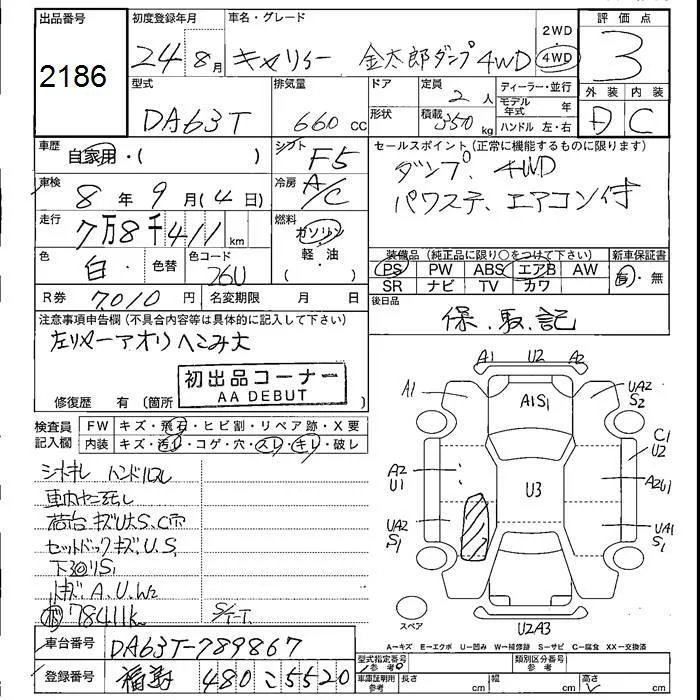 出品番号 初度登録年月 車名・グレード 2WD 評価点
2186 24年8月 キャリィー 金太郎ダンプ4WD 4WD 3
型式 排気量 ドア 定員 ディーラー・並行 外装 内装
DA63T 660cc 形状 2人 積載 350kg モデル年式 年 ハンドル 左・右 D C
車歴 自家用・( ) シフト F5 セールスポイント(正常に機能するものに限ります)
車検 8年9月(4日) 冷房 A/C ダンプ、4WD
パワステ、エアコン付
走行 7万8千411km 燃料 ガソリン 軽・油 ( )
装備品(純正品に限り○をつけて下さい) 新車保証書
色 白・ 色替 色コード 26U PS PW ABS エアB AW 有・無
SR ナビ TV カワ
R券 7,010円 名変期限 月 日 後日品
保.取.記
注意事項申告欄(不具合内容等は具体的に記入して下さい)
左リヤーアオリヘこみ大
初出品コーナー
AA DEBUT
修復歴 有(箇所
検査員記入欄 FW キズ・飛石・ヒビ割・リペア跡・X要
内装 キズ・汚れ・コゲ・穴・スレ・キレ・破レ
シートキレ ハンドルスレ
荷台 キズU大S、C穴
セットバックキズ、U、S
下廻りS1
キズ、A、U、W2
78411k S/T-T.
A1 U2 A2
A1 A1S1 UA2 S2
C1 U2
A2 U1 U3 A2U1
UA2 S1 UA1 S1
スペア
U2A3
A=キズ E=エクボ U=凹み W=補修跡 S=サビ C=腐食 XX=交換済
車台番号 DA63T-789867 型式指定番号 参考 類別区分番号 参考
登録番号 福島 480 こ 5520 車庫証明用 参考 長さ cm 幅 cm 高さ cm